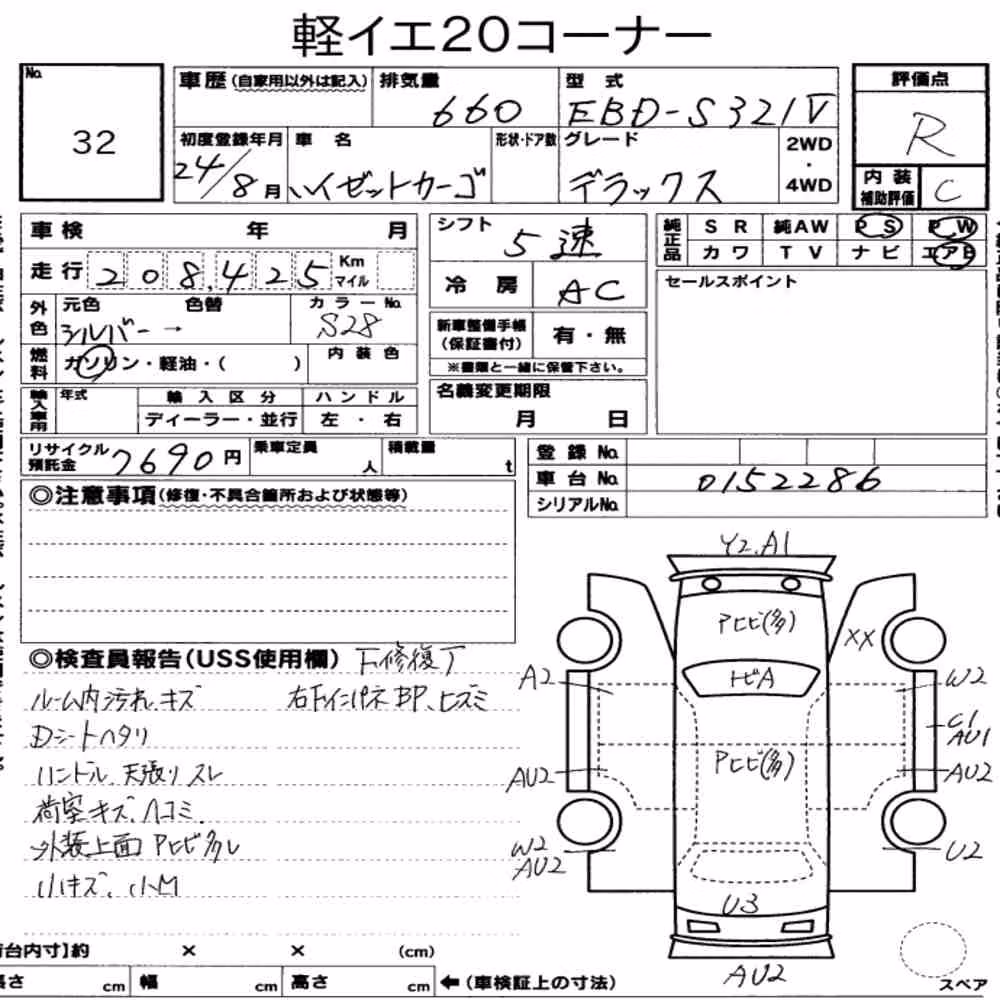 軽イエ20コーナー
No. 32
車歴(自家用以外は記入) 排気量 660 型式 EBD-S321V
評価点 R
初度登録年月 24/8月 車名 ハイゼットカーゴ 形状・ドア数 グレード デラックス 2WD・4WD
内装補助評価 C
車検 年 月
走行 208,425 Km マイル
外色 元色 シルバー → 色替 カラーNo. S28
燃料 ガソリン・軽油・( ) 内装色
輸入車用 年式 輸入区分 ハンドル
ディーラー・並行 左・右
シフト 5速
冷房 AC
新車整備手帳(保証書付) 有・無
※書類と一緒に保管下さい。
名義変更期限
月 日
純正品 SR 純AW PS PW
カワ TV ナビ エアB
セールスポイント
リサイクル預託金 7690円 乗車定員 人 積載量 t
登録No.
車台No. 0152286
シリアルNo.
◎注意事項(修復・不具合箇所および状態等)
◎検査員報告(USS使用欄) 下修復了
ルーム内汚れ、キズ 右Fインパネ BP、ヒズミ
Dシートヘタリ
ハンドル、天張りスレ
荷室キズ、ハコミ、
外装上面 アヒビ多し
小キズ、小M
Y2.A1
アヒビ(多)
XX
トビA
A2
W2
C1
AU1
アヒビ(多)
AU2
AU2
W2
AU2
U2
U3
AU2
スペア
台内寸】約 × × (cm)
長さ cm 幅 cm 高さ cm ←(車検証上の寸法)